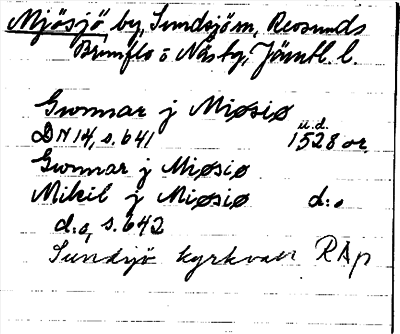 Mjösjö by, Sundsjö sn, Revsunds
Brunflo o Näs tg, Jämtl. l.
Gwnnar j Miøsiø
u.d.
DN 14, s. 641 1528 or.
Gwnnar j Miøsiø
Mikil j Miøsiø d:o
d:o, s. 642
Sundsjö kyrkvall RAp